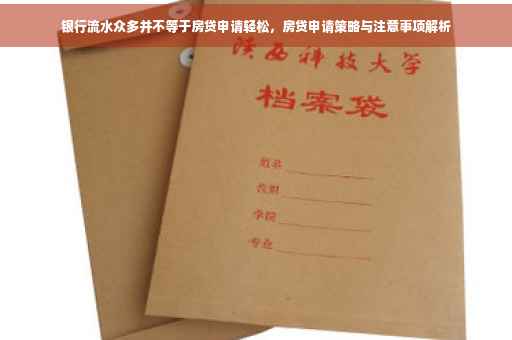 银行流水众多并不等于房贷申请轻松，房贷申请策略与注意事项解析
陕西科技大学
档案袋
学院
专业